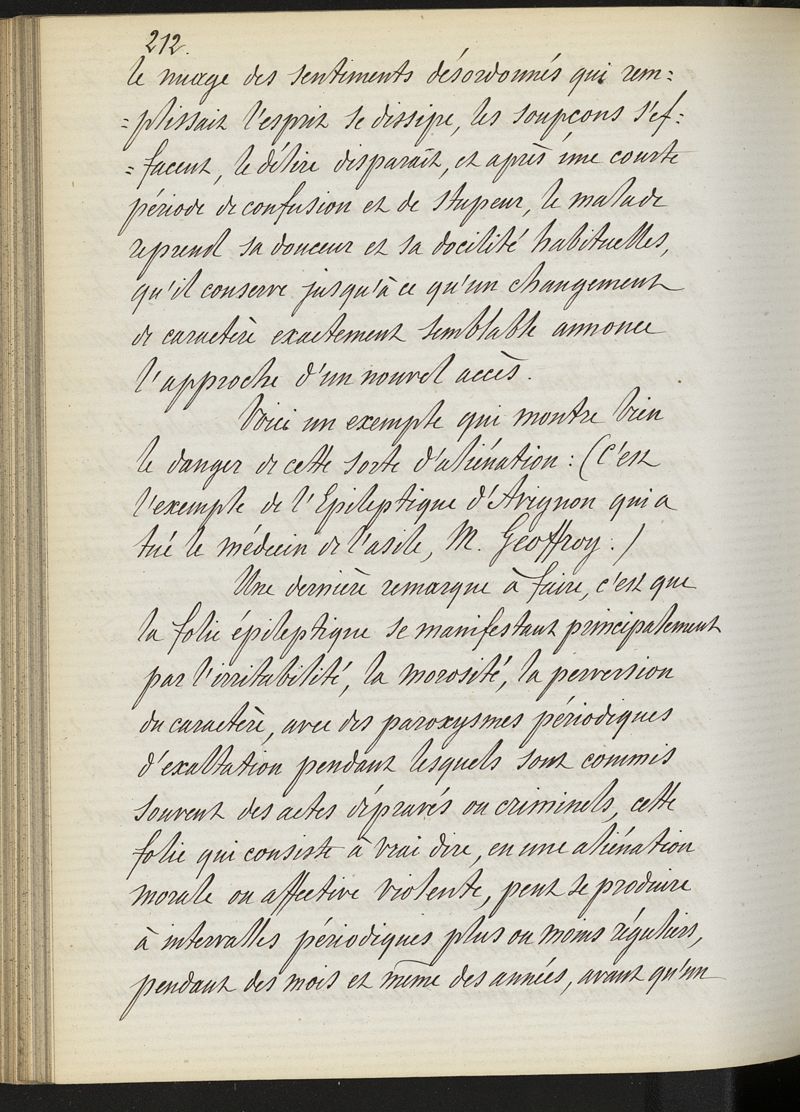 212.
le nuage des sentiments désordonnés qui rem=
=plissait l'esprit se dissipe, les soupçons s'ef=
=facent, le délire disparaît, et après une courte
période de confusion et de stupeur, le malade
reprend sa douceur et sa docilité habituelles,
qu'il conserve jusqu'à ce qu'un changement
de caractère exactement semblable annonce
l'approche d'un nouvel accès.
Voici un exemple qui montre bien
le danger de cette sorte d'aliénation : (C'est
l'exemple de l'Epileptique d'Avignon qui a
tué le médecin de l'asile, M. Geoffroy.)
Une dernière remarque à faire, c'est que
la folie épileptique se manifestant principalement
par l'irritabilité, la morosité, la perversion
du caractère, avec des paroxysmes périodiques
d'exaltation pendant lesquels sont commis
souvent des actes dépravés ou criminels, cette
folie qui consiste à vrai dire, en une aliénation
morale ou affective violente, peut se produire
à intervalles périodiques plus ou moins réguliers,
pendant des mois et même des années, avant qu'un